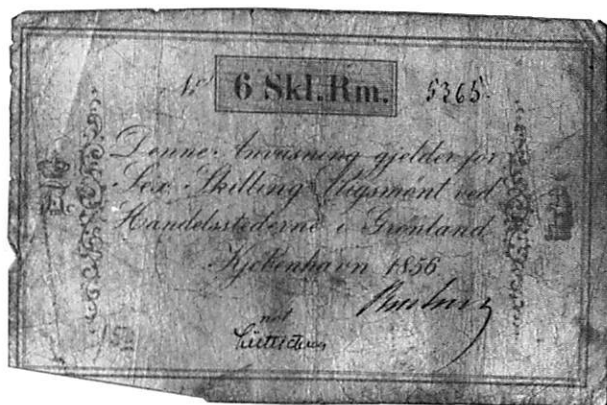 No 6 Skl.Rm. 5365.
Denne Anviisning gjelder for
Sex Skilling Rigsmønt ved
Handelsstederne i Grønland
Kjøbenhavn 1856
not